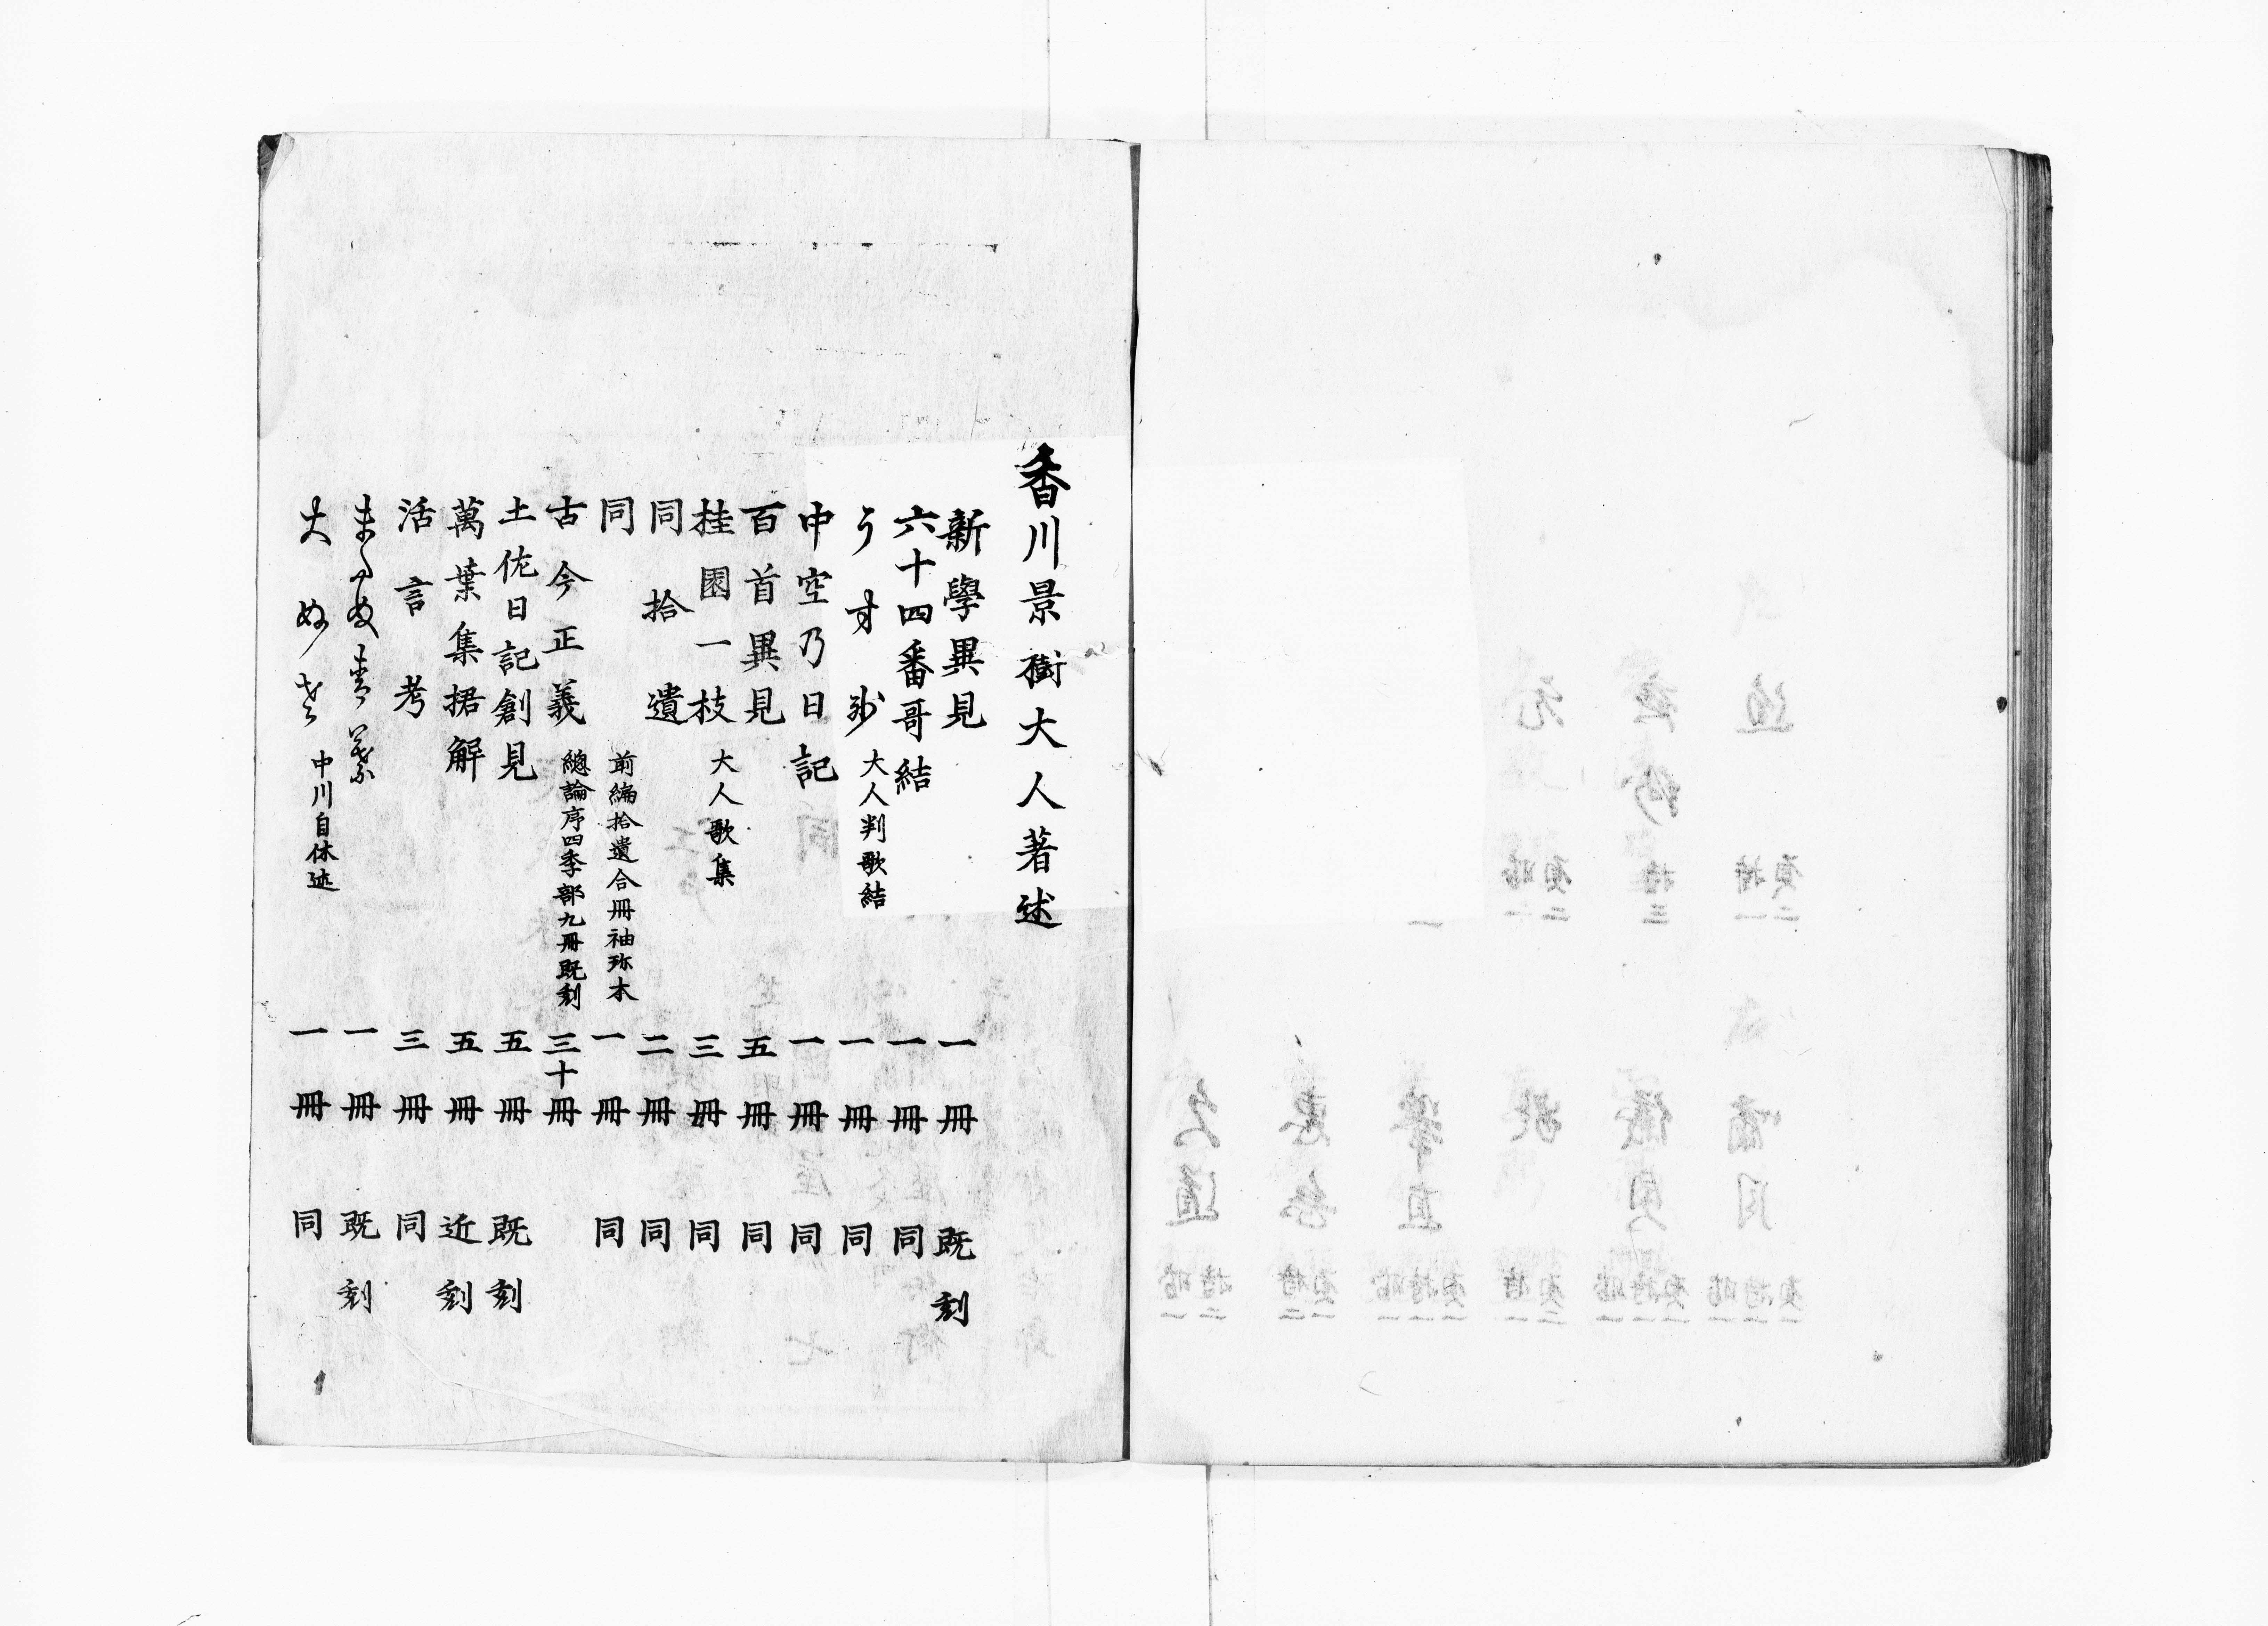 香川景樹大人著述
新學異見 一冊 既刻
六十四番哥結 一冊 同
大人判歌結 一冊 同
中空乃日記 一冊 同
百首異見 五冊 同
桂園一枝 大人歌集 三冊 同
同拾遺 二冊 同
同 前編拾遺合冊袖珎本 一冊 同
古今正義 總論序四季部九冊既刻 三十冊
土佐日記創見 五冊 既刻
萬葉集捃解 五冊 近刻
活言考 三冊 同
一冊 既刻
大ぬさ 中川自休述 一冊 同